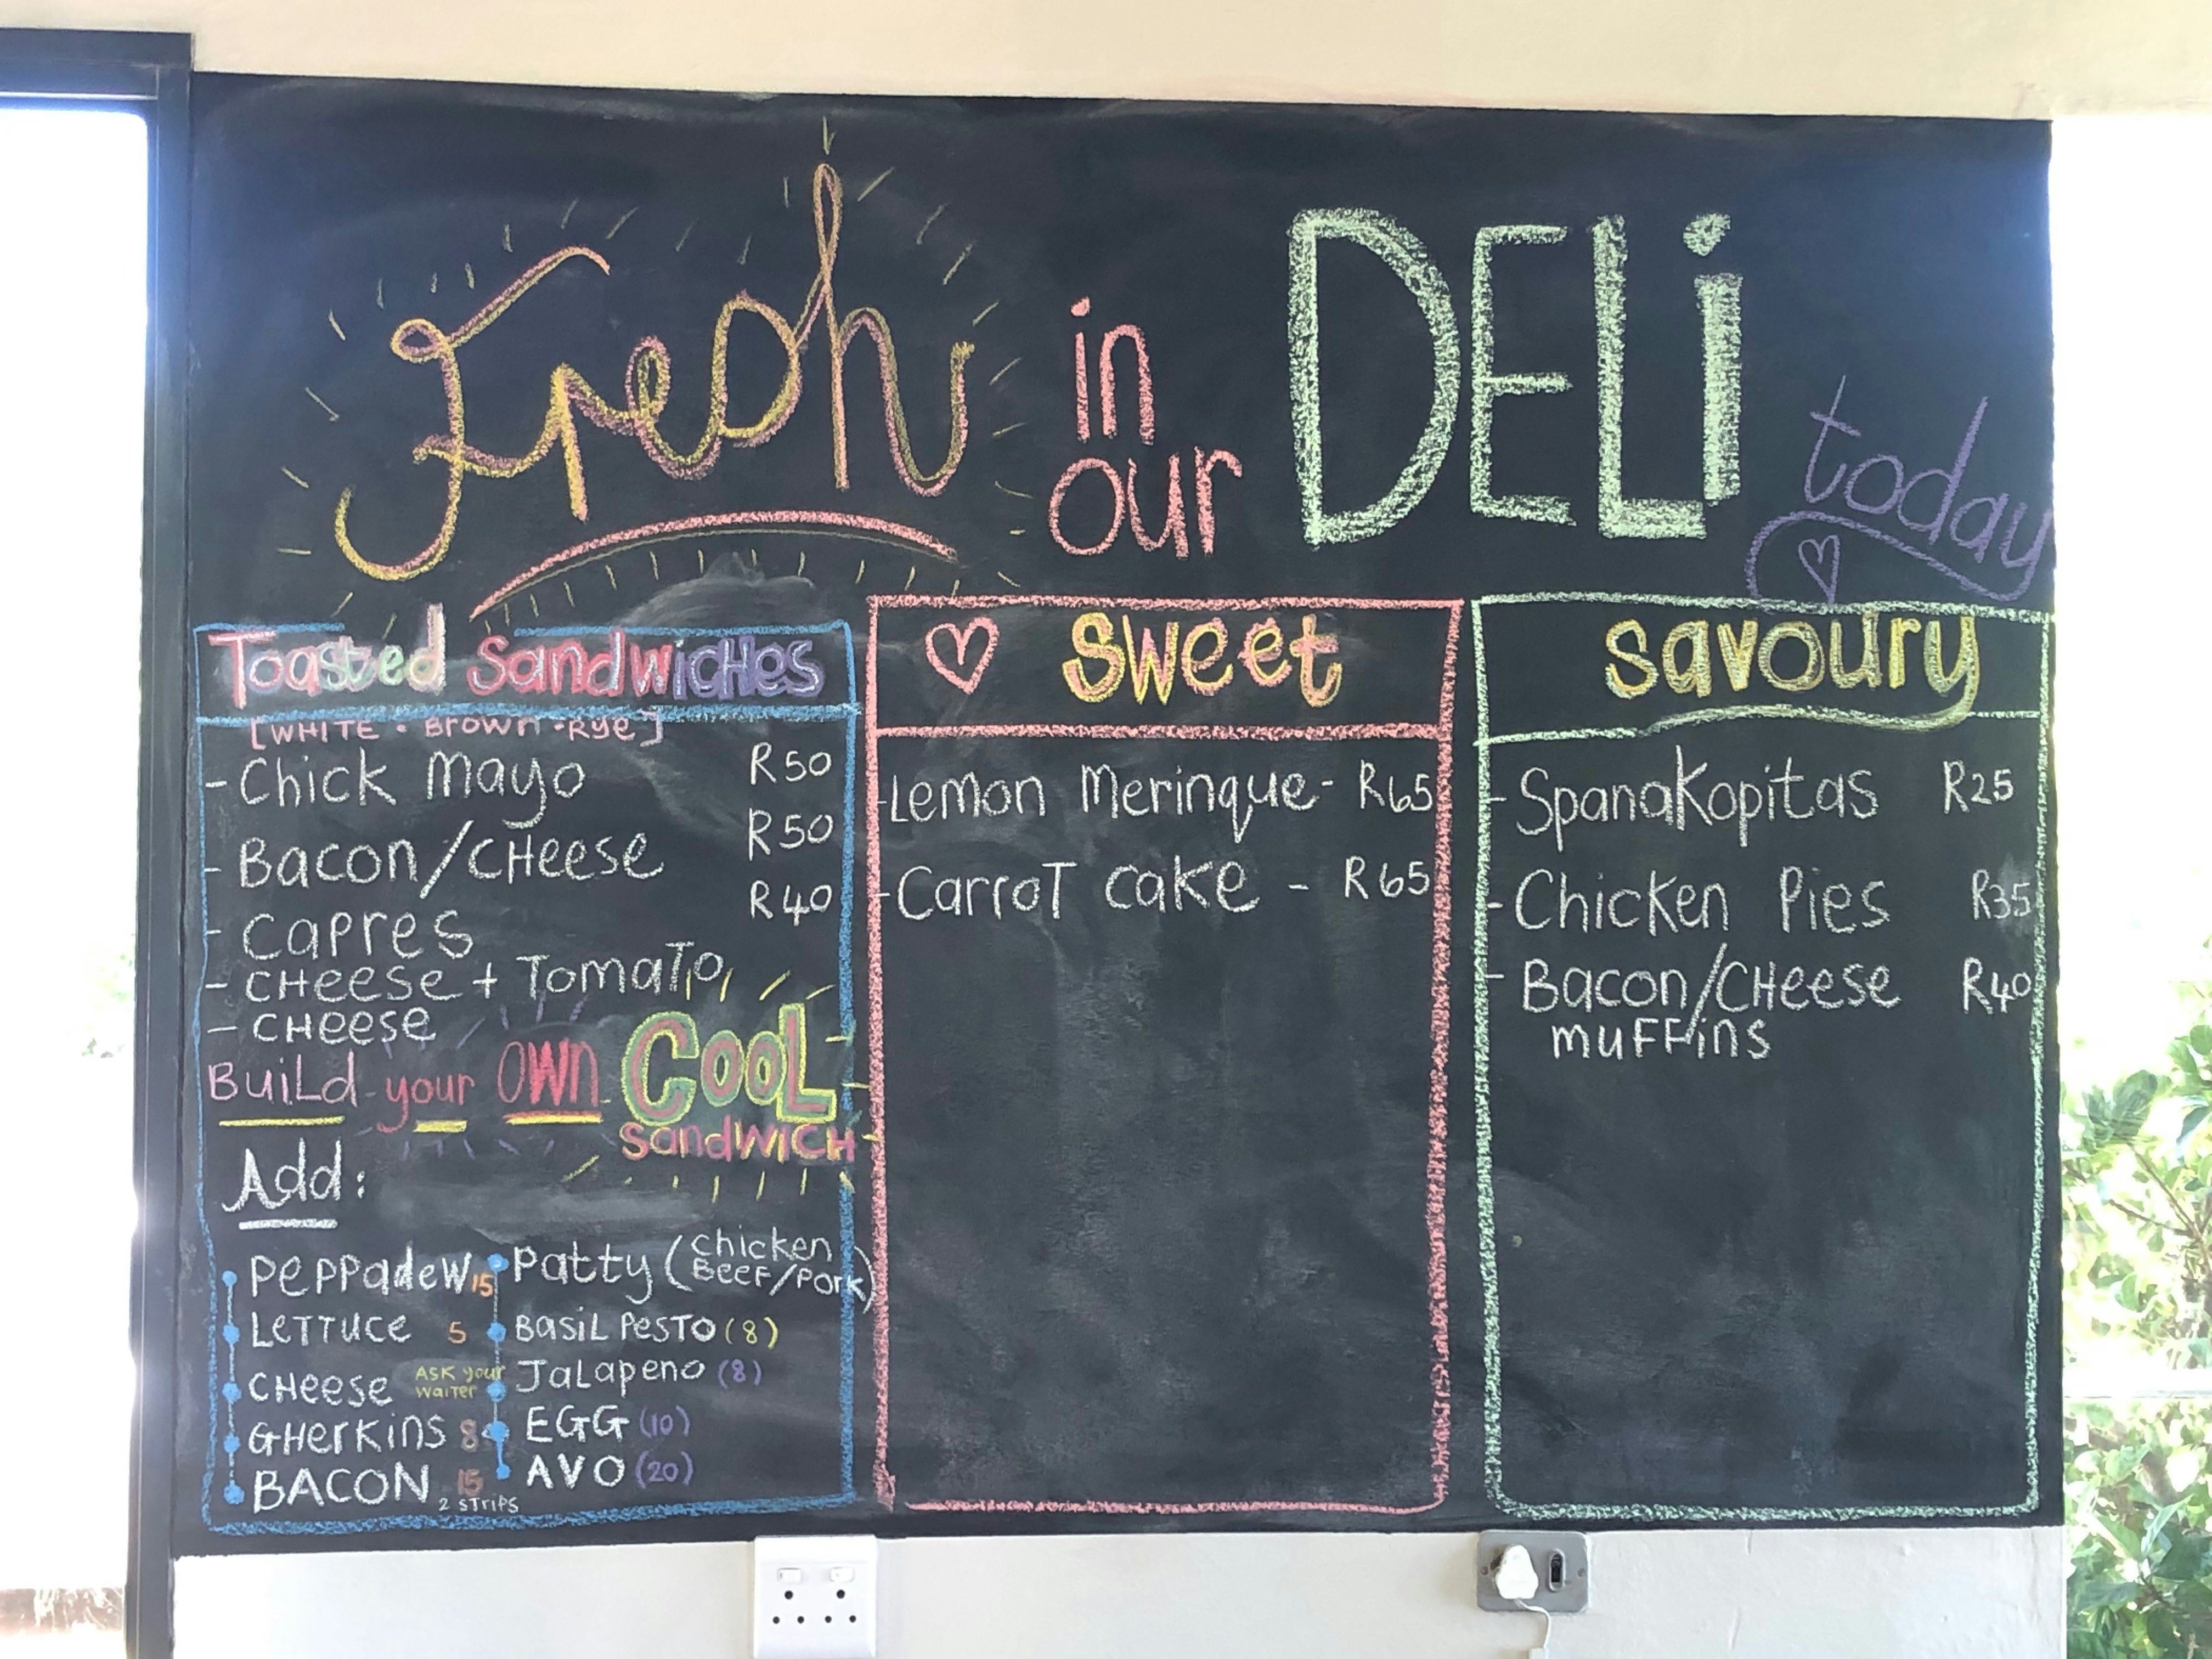 Fresh in our DELi today
Toasted SandwicHes
[WHITE • Brown • Rye]
- Chick mayo R50
- Bacon/CHeese R50
- Capres R40
- CHeese + TomaTo
- CHeese
BuiLd your OWN COOL
SandWICH
Add:
PePPadeW 15
LeTTuce 5
CHeese ASK your waiter
GHerKins 8
BACON 15
2 STrips
Patty (chicken
BeeF/Pork)
BasiL PesTo (8)
JaLapeno (8)
EGG (10)
AVO (20)
Sweet
- Lemon Merinque - R65
- CarroT cake - R65
Savoury
- SpanaKopitas R25
- Chicken Pies R35
- Bacon/CHeese R40
muFFins